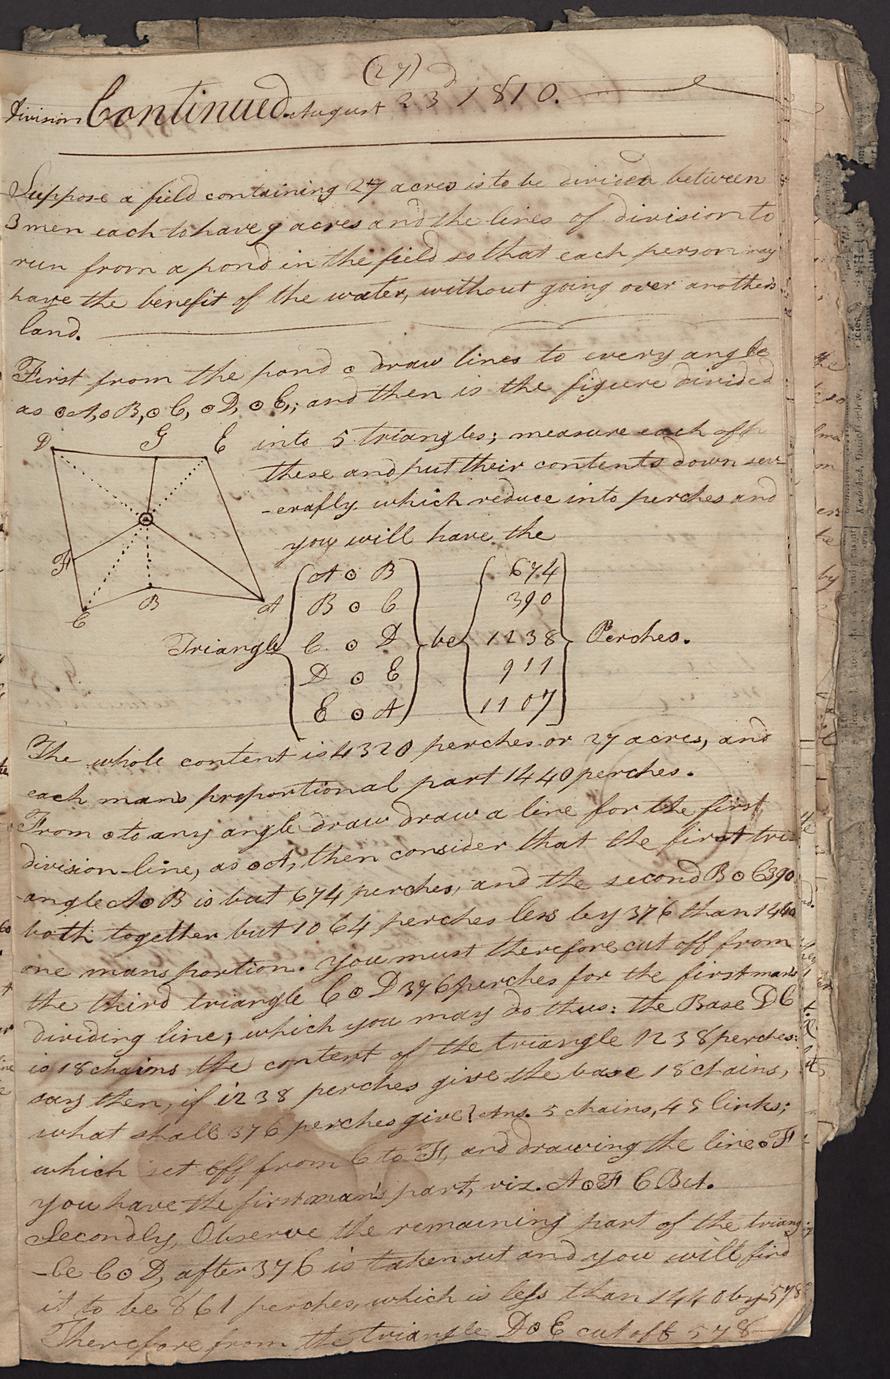 (27)
Division Continued. August 23d 1810.
Suppose a field containing 27 acres is to be divided between
3 men each to have 9 acres and the lines of division to
run from a pond in the field so that each person may
have the benefit of the water, without going over another's
land.
First from the pond ⊙ draw lines to every angle
as ⊙A, ⊙B, ⊙C, ⊙D, ⊙E; and then is the figure divided
D G E
into 5 triangles; measure each off
these and put their contents down sev-
-erally which reduce into perches and
you will have the
F
C B A
Triangle { A ⊙ B } be { 674 } Perches.
B ⊙ C 390
C ⊙ D 1238
D ⊙ E 911
E ⊙ A 1107
The whole content is 4320 perches or 27 acres, and
each mans proportional part 1440 perches.
From ⊙ to any angle draw draw a line for the first
division-line, as ⊙A, then consider that the first tri-
-angle A⊙B is but 674 perches, and the second B⊙C 390
both together but 1064 perches less by 376 than 1440
one mans portion. You must therefore cut off from
the third triangle C⊙D 376 perches for the first mans
dividing line; which you may do thus: the Base DC
is 18 chains the content of the triangle 1238 perches:
say then, if 1238 perches give the base 18 chains,
what shall 376 perches give? Ans. 5 chains, 45 links;
which set off from C to F, and drawing the line ⊙F
you have the first man's part, viz. A⊙F C B A.
Secondly, Observe the remaining part of the triang-
-le C⊙D, after 376 is taken out and you will find
it to be 861 perches, which is less than 1440 by 578
Therefore from the triangle D⊙E cut off 578